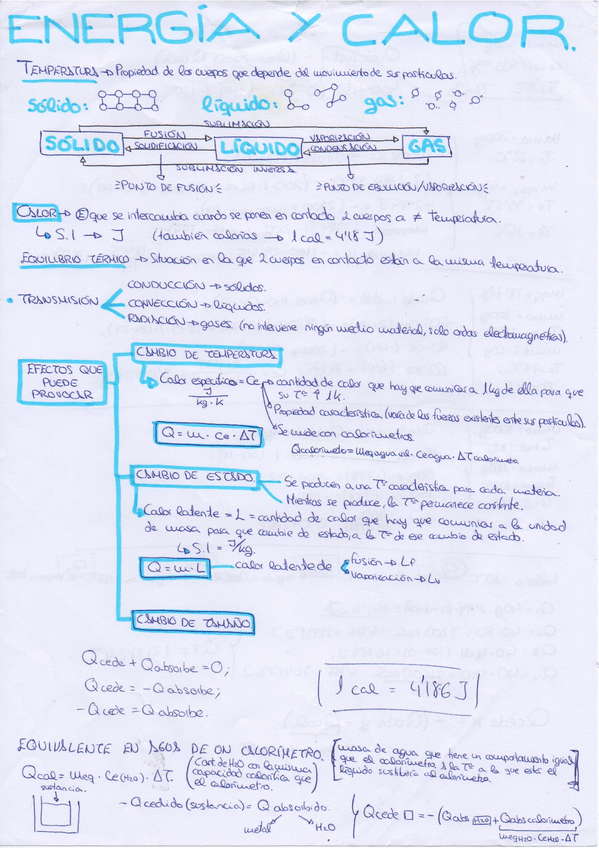 ENERGÍA Y CALOR.
TEMPERATURA → Propiedad de los cuerpos que depende del movimiento de sus partículas.
sólido: líquido: gas:
SUBLIMACIÓN
FUSIÓN VAPORIZACIÓN
SÓLIDO LÍQUIDO GAS
SOLIDIFICACIÓN CONDENSACIÓN
SUBLIMACIÓN INVERSA
PUNTO DE FUSIÓN PUNTO DE EBULLICIÓN/VAPORIZACIÓN
CALOR → E que se intercambia cuando se ponen en contacto 2 cuerpos a ≠ temperatura.
↳ S.I → J (también calorías → 1 cal = 4'18 J)
EQUILIBRIO TÉRMICO → Situación en la que 2 cuerpos en contacto están a la misma temperatura.
CONDUCCIÓN → sólidos.
• TRANSMISIÓN CONVECCIÓN → líquidos.
RADIACIÓN → gases. (no interviene ningún medio material, solo ondas electromagnéticas).
EFECTOS QUE PUEDE PROVOCAR
CAMBIO DE TEMPERATURA
↳ Calor específico = Ce → cantidad de calor que hay que comunicar a 1kg de ella para que
J / kg·K su Tª ↑ 1K.
Propiedad característica (varía de las fuerzas existentes entre sus partículas).
Q = m · ce · ΔT Se mide con calorímetros
Qcalorímetro = meq agua cal. · Ce agua · ΔT calorímetro
CAMBIO DE ESTADO Se producen a una Tª característica para cada materia.
Mientras se produce, la Tª permanece constante.
↳ Calor latente = L = cantidad de calor que hay que comunicar a la unidad
de masa para que cambie de estado, a la Tª de ese cambio de estado.
↳ S.I = J/kg.
Q = m · L calor latente de fusión → Lf
vaporización → Lv
CAMBIO DE TAMAÑO
Qcede + Qabsorbe = 0;
Qcede = - Qabsorbe;
- Qcede = Qabsorbe.
1 cal = 4'186 J
EQUIVALENTE EN AGUA DE UN CALORÍMETRO. [masa de agua que tiene un comportamiento igual
que el calorímetro a la Tª a la que está el
líquido sustituiría al calorímetro.]
Qcal = meq · Ce (H2O) · ΔT. (Cant de H2O con la misma
capacidad calorífica que
el calorímetro.)
sustancia.
- Qcedido (sustancia) = Q absorbido.
metal H2O
Qcede = - (Qabs H2O + Qabs calorímetro)
meq H2O · Ce H2O · ΔT